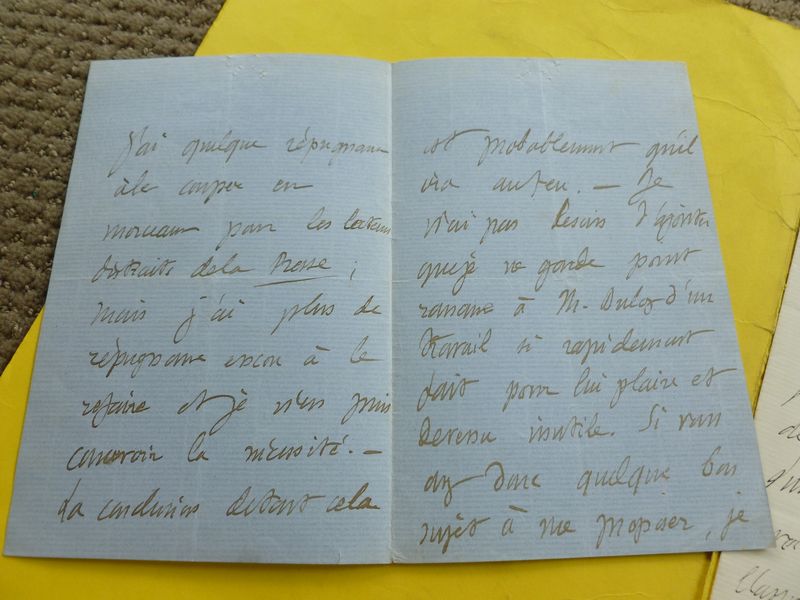 J'ai quelque répugnance
à le couper en
morceaux pour les lecteurs
distraits de la Presse ;
mais j'ai plus de
répugnance encore à le
refaire et je n'en puis
concevoir la nécessité. —
La conclusion de tout cela
est probablement qu'il
ira au feu. — Je
n'ai pas besoin d'ajouter
que je ne garde point
rancune à M. Buloz d'un
travail si rapidement
fait pour lui plaire et
devenu inutile. Si vous
avez donc quelque bon
sujet à me proposer, je